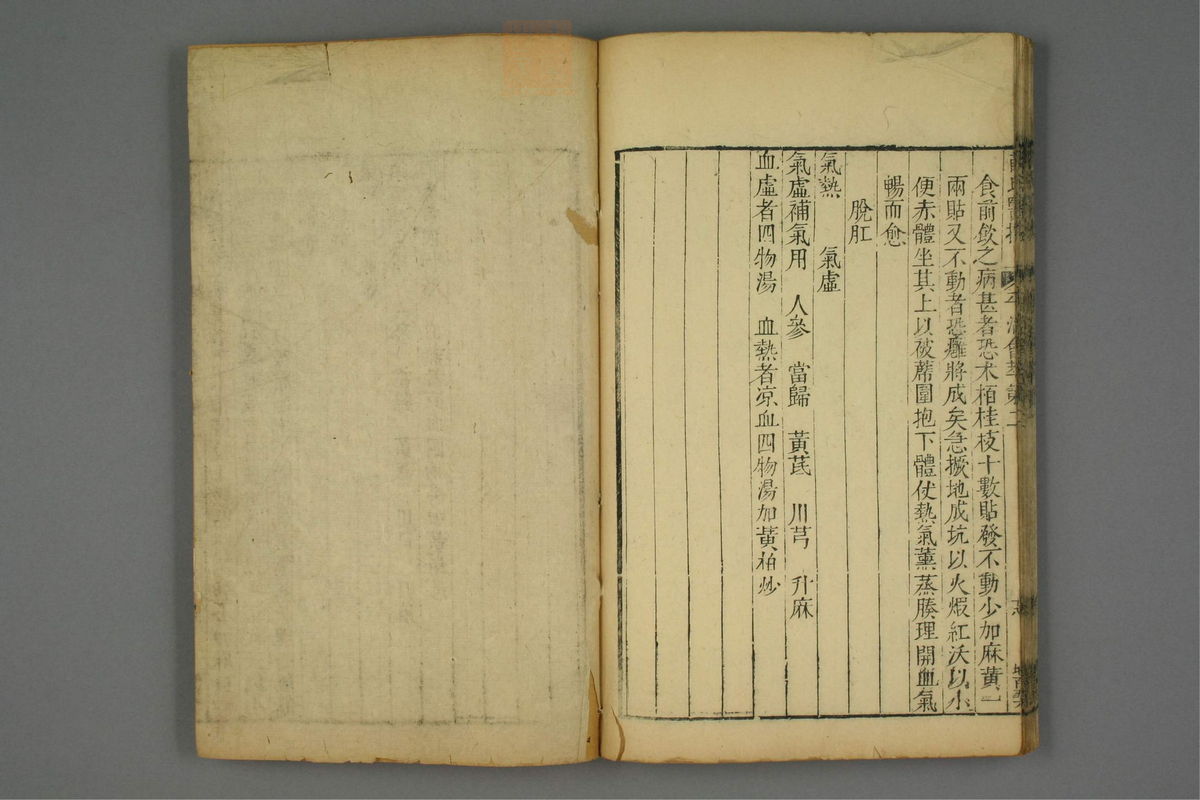 食前飲之病甚者恐朮栢桂枝十數貼發不動少加麻黃一
兩貼又不動者恐癰將成矣急撅地成坑以火煆紅沃以小
便赤體坐其上以被蓆圍抱下體仗熱氣薰蒸腠理開血氣
暢而愈
脫肛
氣熱　氣虛
氣虛補氣用　人參　當歸　黃芪　川芎　升麻
血虛者四物湯　血熱者凉血四物湯加黃柏炒